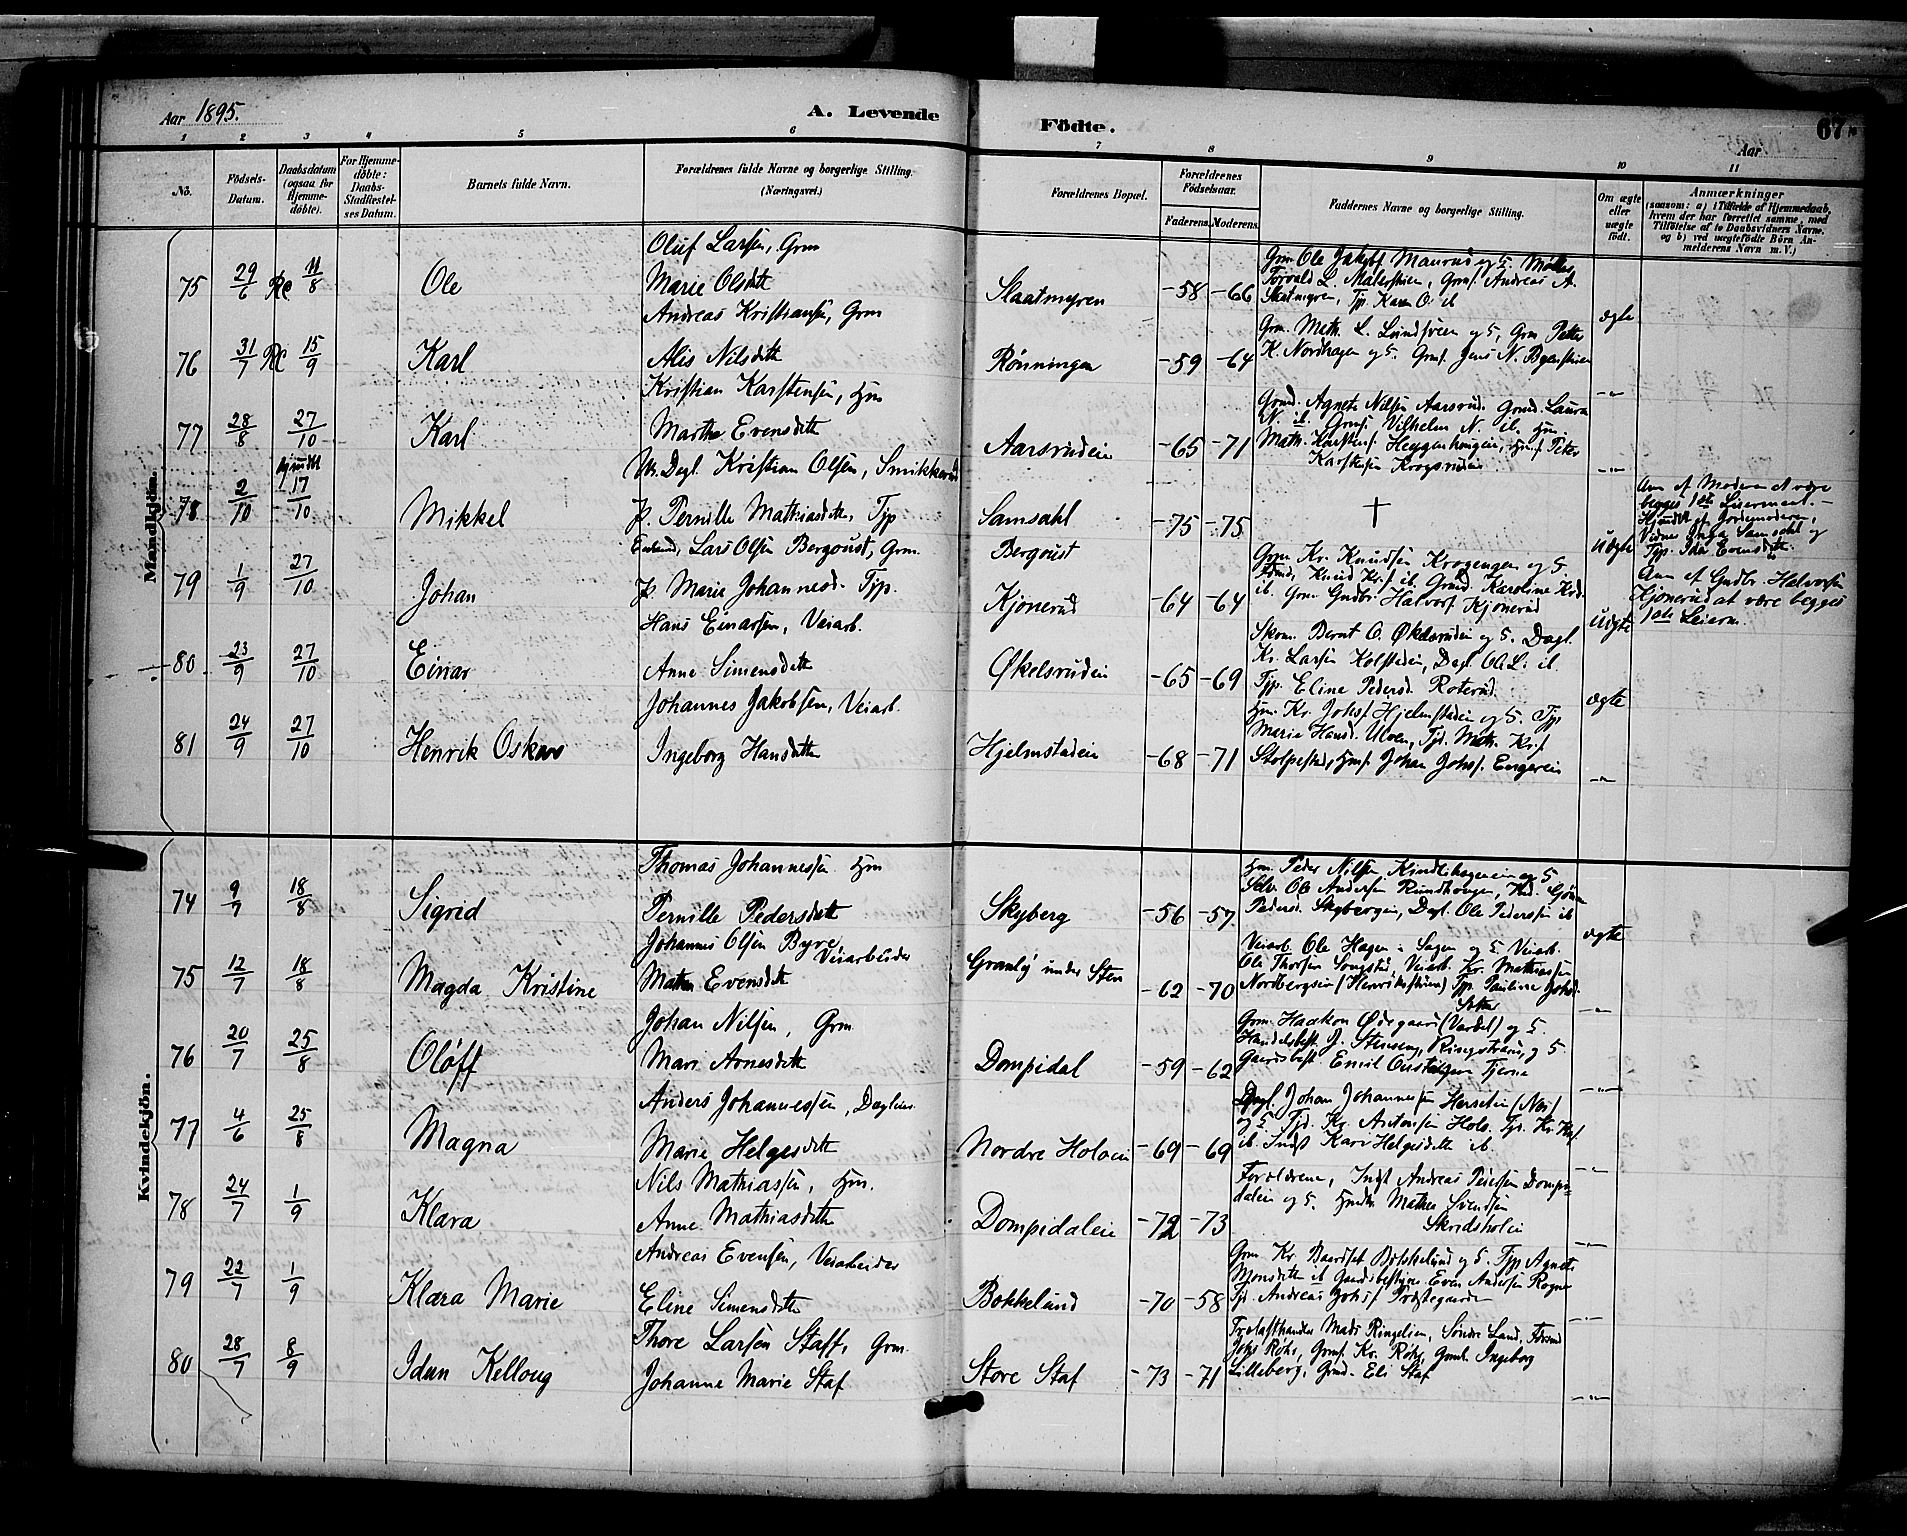 Aar 1895.
A. Levende
Födte.
67
Aar
1 2 3 4 5 6 7 8 9 10 11
No.
Födsels-Datum.
Daabsdatum (ogsaa for Hjemme-döbte).
For Hjemme-döbte: Daabs-Stadfæstel-ses Datum.
Barnets fulde Navn.
Forældrenes fulde Navne og borgerlige Stilling. (Næringsvei.)
Forældrenes Bopæl.
Forældrenes Födselsaar.
Faderens. Moderens.
Faddernes Navne og borgerlige Stilling.
Om ægte eller uægte födt.
Anmærkninger
(saasom: a) i Tilfælde af Hjemmedaab, hvem der har forrettet samme, med Tilföielse af to Daabsvidners Navne, og b) ved uægtefödte Börn An-melderens Navn m. V.)
Mandkjön.
75 29/6 Re 11/8 Ole
Oluf Larsen, Grm
Marie Olsdtt
Slaatmyren -58 -66
Grm. Ole Jakobs. Maurud og 5.
Slaatmyren, Tjp. Karen O. ib
ægte
76 31/7 Re 15/9 Karl
Andreas Kristiansen, Grm
Alis Nilsdtt
Rønningen -59 -64
Grm. Math. L. Lundsveen og 5, Grm Petter
K. Nordhagen og 5. Grms. Jens N. Byenstuen
-"-
77 28/8 27/10 Karl
Kristian Karstensen, Hm
Marthe Evensdtt
Aarsrudeie -65 -71
Grmd. Agnete Nilsen Aarsrud. Grmd. Laura
N. ib. Grms. Vilhelm N. ib. Hm.
Math. Karstens. Heggenhaugen, Hms Peter
Karstensen Krogsrudeie
-"-
78 2/10 hjmdbt 17/10 Mikkel
Un. Dagl. Kristian Olsen, Smikkerud
P. Pernille Mathiasdtt, Tjp
Samsahl -75 -75
†
uægte
Anm. af Moderen at være
begges 1ste Leiermaal. –
Hjmdbt af Jordemoderen,
Vidner Inga Samsahl og
Tjp. Ida Evensdtt.
79 1/9 27/10 Johan
Enkemd, Lars Olsen Bergoust, Grm.
P. Marie Johannesd. Tjp.
Bergoust
Kjonerud -64 -64
Grm Kr. Knudsen Krogengen og 5
ib. Grm Gudbr. Halvors. Kjonerud
uægte
Anm. af Gudbr. Halvorsen
Kjonerud at være begges
1ste Leierm.
80 23/9 27/10 Einar
Hans Einarsen, Veiarb.
Anne Simensdtt
Økelsrudeie -65 -69
Skom. Bernt O. Økelsrudeie og 5. Dagl.
Kr. Larsen Kolstadeie, Dagl. Ole L. ib.
Tjp. Eline Pedersd. Roterud.
ægte
81 24/9 27/10 Henrik Oskar
Johannes Jakobsen, Veiarb.
Ingeborg Hansdtt
Hjelmstadeie -68 -71
Hm. Kr. Johs. Hjelmstadeie og 5. Tjp
Marie Hansd. Ulven, Tjd. Math. Kr.s
Stolpestad, Hms. Johan Johs. Engereie
-"-
Kvindekjön.
74 9/7 18/8 Sigrid
Thomas Johannessen Hm
Pernille Pedersdtt
Skyberg -56 -57
Hm. Peder Nilsen, Kindlihageneie og 5
Selv. Ole Andersen Rundhaugen,
Pedersd. Skybergeie, Dagl. Ole Pedersen ib
ægte
75 12/7 18/8 Magda Kristine
Johannes Olsen Byre, Veiarbeider
Mathea Evensdtt
Granly under Sten -62 -70
Veiarb. Ole Hagen i Sagen og 5 Veiarb.
Ole Thorsen Songstad, Veiarb. Kr. Mathiassen
Nordbergseie (Henrikstuen) Tjp. Pauline Johsd.
-"-
76 20/7 25/8 Oløff
Johan Nilsen, Grm.
Mari Arnesdtt
Dompidal -59 -62
Grm. Haakon Ødegaard (Vardal) og 5.
Handelsbest. J. Stenseng, Ringstrand, og 5
Gaardsbest. Emil Tjerne
-"-
77 4/6 25/8 Magna
Anders Johannessen, Dagleier
Marie Helgesdtt
Nordre Holoeie -69 -69
Dagl. Johan Johannessen Herseteie
og 5 Tjd. Kr. Antonsen Holo. Tjp.
ib. Indst Kari Helgesdtt ib.
-"-
78 24/7 1/9 Klara
Nils Mathiassen, Hm.
Anne Mathiasdtt
Dompidaleie -72 -73
Forældrene, Indst Andreas Pedersen Dompi-
daleie og 5. Mathea Svendsen
Skridsholeie
-"-
79 22/7 1/9 Klara Marie
Andreas Evensen, Veiarbeider
Eline Simensdtt
Bokkelund -70 -58
Grm Kr. Baardset Bokkelund og 5. Tjp. Agnete
Monsdtt ib Gaardsbestyrer Even Andersen Rogne
Tjd. Andreas Johs. Præstegaarden
-"-
80 28/7 8/9 Idun Kelloug
Thore Larsen Staff, Grm.
Johanne Marie Staf
Store Staf -73 -71
Trelasthandler Mads Ringelien, Søndre Land,
Johs Røhs, Grms. Kr. Røhs, Grmk. Ingeborg
Lilleberg, Grmd. Eli Staf
-"-